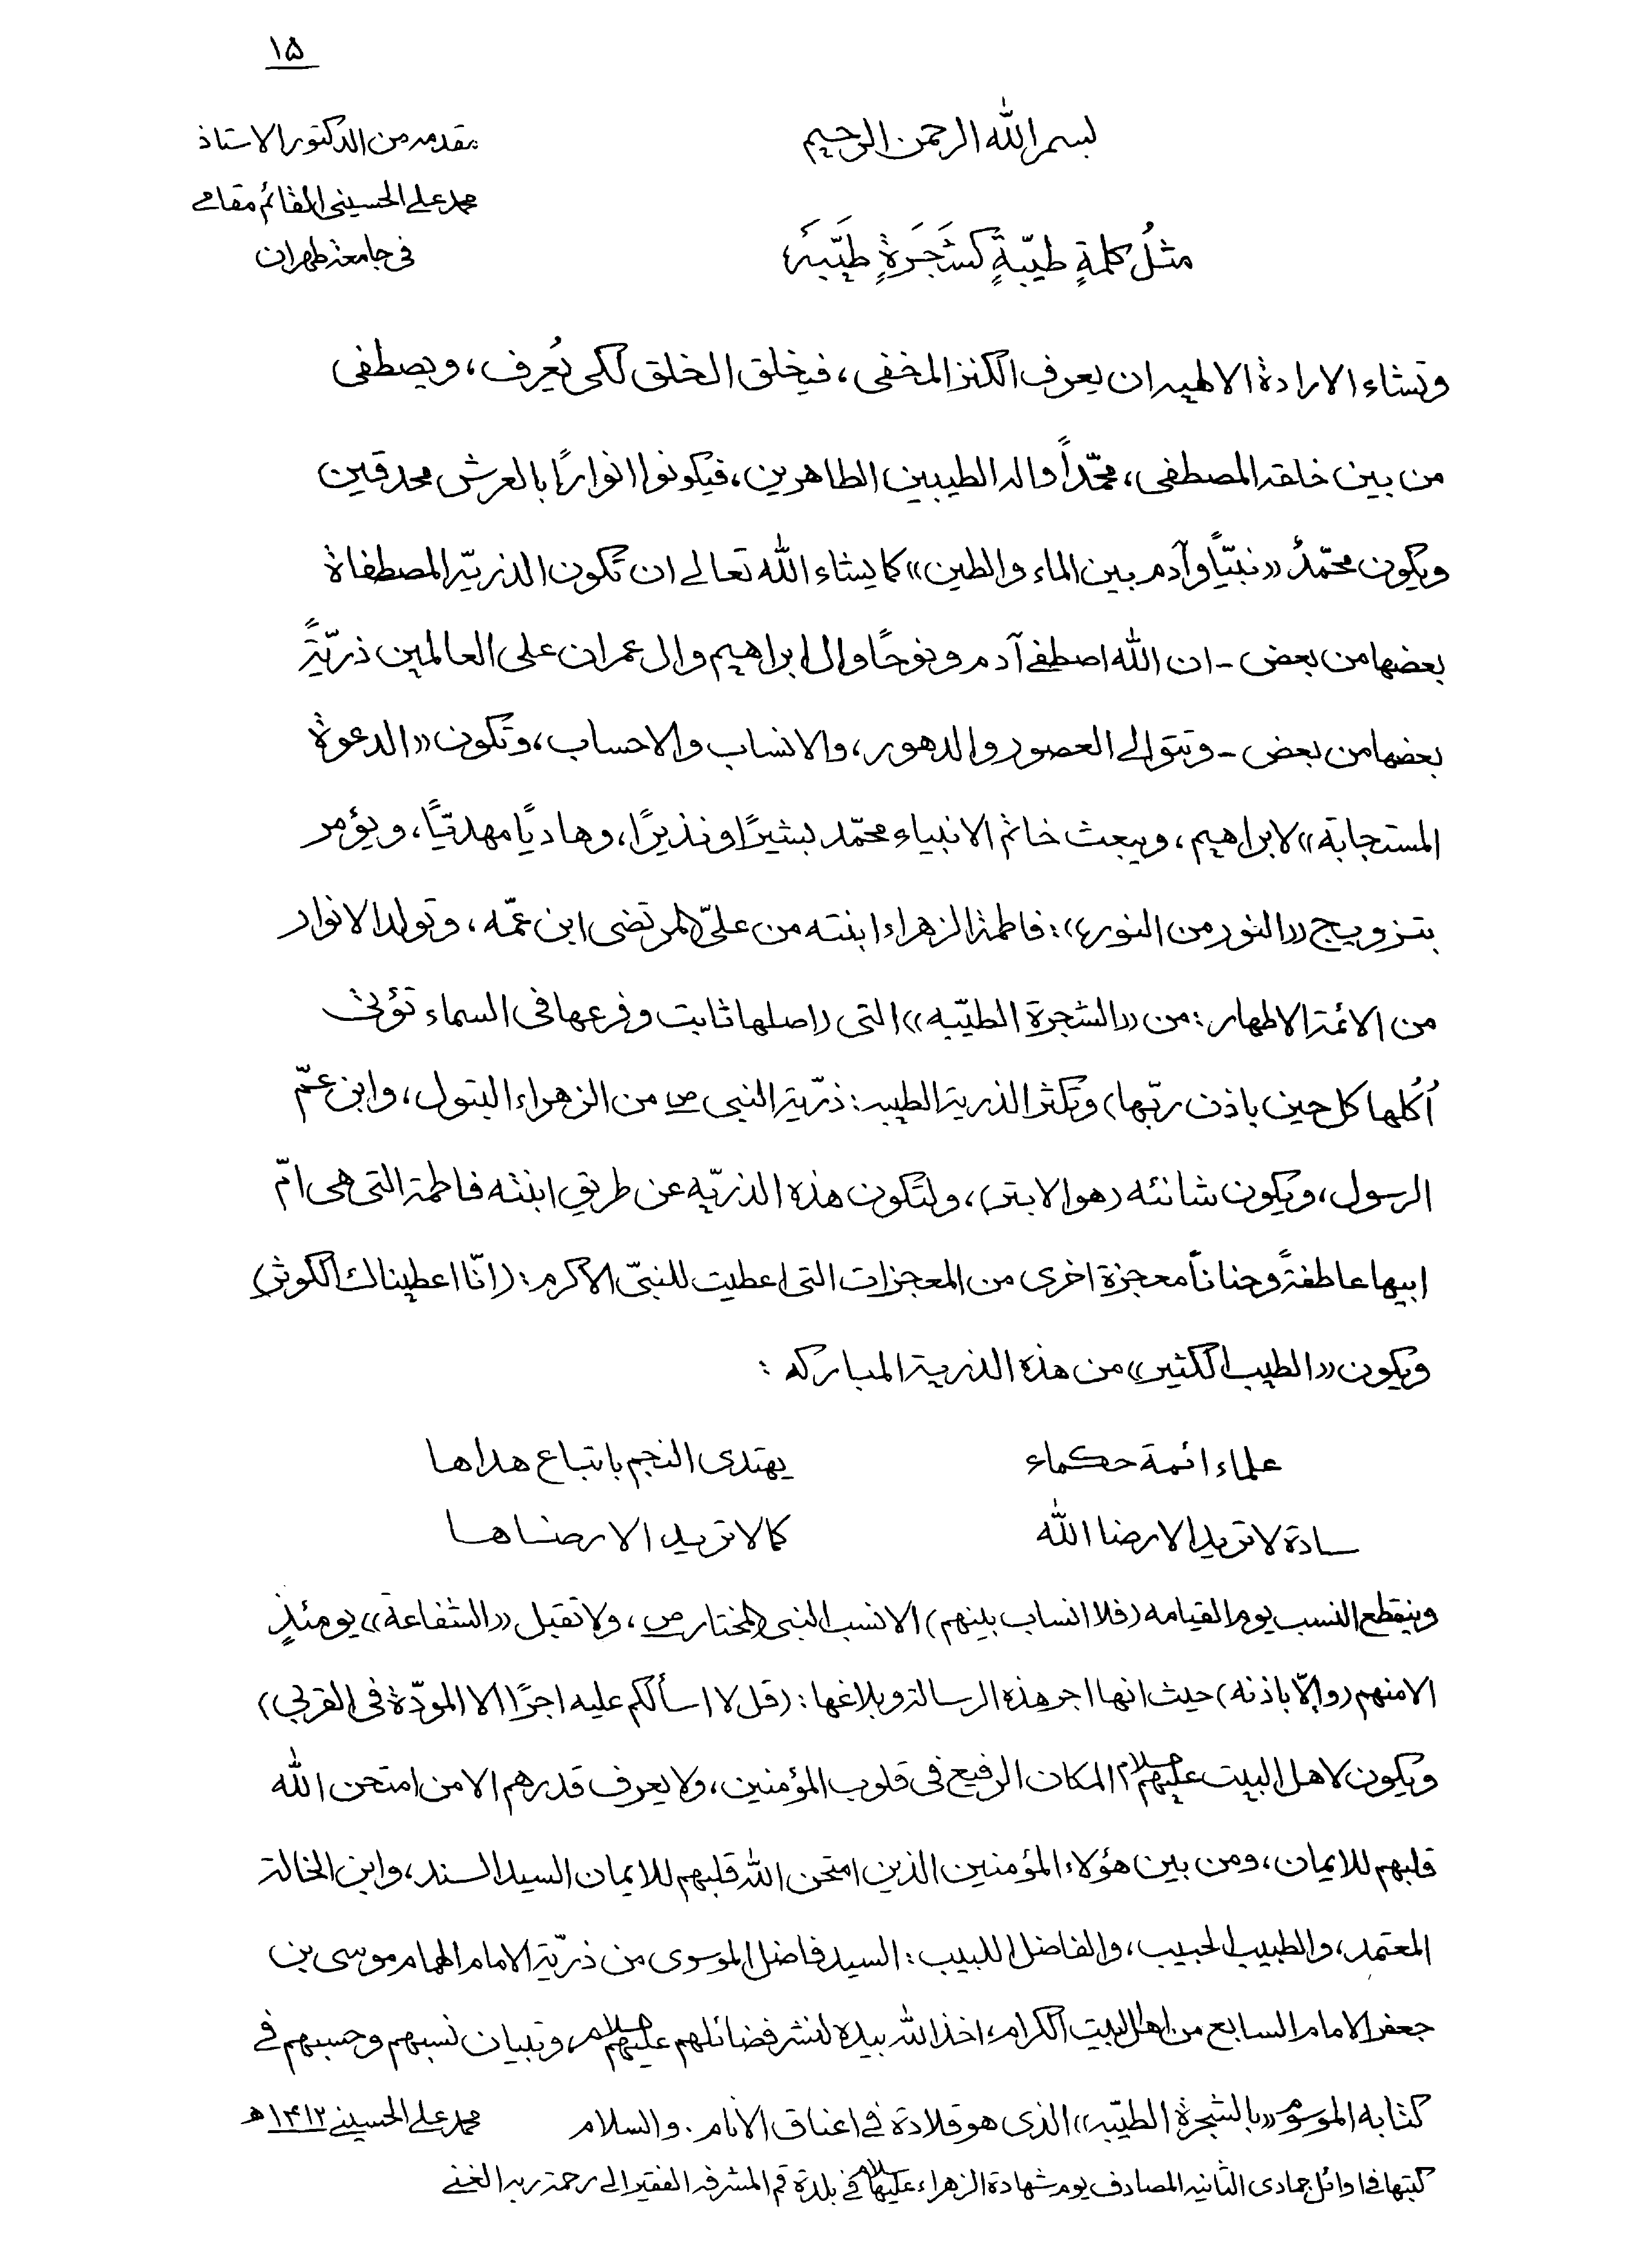 ١٥
بسم الله الرحمن الرحيم
مقدمه من الدكتور الاستاذ
محمد علي الحسيني القائم مقامي
في جامعة طهران
مثلُ كلمةٍ طيّبةٍ كشَجَرَةٍ طَيّبَة
وتشاء الارادة الالهيه ان يعرف الكنز المخفى، فيخلق الخلق لكى يُعرف، ويصطفى
من بين خلقه المصطفى، محمّداً واله الطيبين الطاهرين، فيكونوا انوارًا بالعرش محدقين
ويكون محمّدٌ «نبيّاً وآدم بين الماء والطين» كما يشاء الله تعالى ان تكون الذريّة المصطفاة
بعضها من بعض - ان الله اصطفى آدم ونوحًا وال ابراهيم وال عمران على العالمين ذريّةً
بعضها من بعض - وتتوالى العصور والدهور، والانساب والاحساب، وتكون «الدعوة
المستجابة» لابراهيم، ويبعث خاتم الانبياء محمّد بشيرًا ونذيرًا، وهاديًا مهديًّا، ويؤمر
بتزويج «النور من النور»: فاطمة الزهراء ابنته من عليّ المرتضى ابن عمّه، وتولد الانوار
من الائمة الاطهار: من «الشجرة الطيّبه» التى (اصلها ثابت وفرعها فى السماء تؤتى
اُكُلها كل حين باذن ربّها) وتكثر الذرية الطيبه: ذرّية النبى ص من الزهراء البتول، وابن عمّ
الرسول، ويكون شانئه (هو الابتر)، ولتكون هذه الذريّه عن طريق ابنته فاطمة التى هى امّ
ابيها عاطفةً وحناناً معجزة اخرى من المعجزات التى اعطيت للنبىّ الاكرم: (انّا اعطيناك الكوثر)
ويكون «الطيب الكثير» من هذه الذرية المباركه :
علماء ائمة حكماء يهتدى النجم باتباع هداها
سادة لا تريد الا رضا الله كما لا تريد الا رضاها
وينقطع النسب يوم القيامه (فلا انساب بينهم) الا نسب النبى المختار ص، ولا تقبل «الشفاعة» يومئذٍ
الا منهم (والّا باذنه) حيث انها اجر هذه الرسالة وبلاغها: (قل لا اسألكم عليه اجرًا الا المودّة فى القربى)
ويكون لاهل البيت عليهم السلام المكان الرفيع فى قلوب المؤمنين، ولا يعرف قدرهم الا من امتحن الله
قلبهم للايمان، ومن بين هؤلاء المؤمنين الذين امتحن الله قلبهم للايمان السيد السند، وابن الخالة
المعتمد، والطبيب الحبيب، والفاضل اللبيب: السيد فاضل الموسوى من ذريّة الامام الهمام موسى بن
جعفر الامام السابع من اهل البيت الكرام، اخذ الله بيده لنشر فضائلهم عليهم السلام، وتبيان نسبهم وحسبهم في
كتابه الموسوم «بالشجرة الطيّبه» الذى هو قلادة في اعناق الانام. والسلام محمد علي الحسيني ١٤١٢ ه
كتبتها في اوائل جمادى الثانيه المصادف يوم شهادة الزهراء عليها السلام في بلدة قم المشرفه الفقير الى رحمة ربه الغني